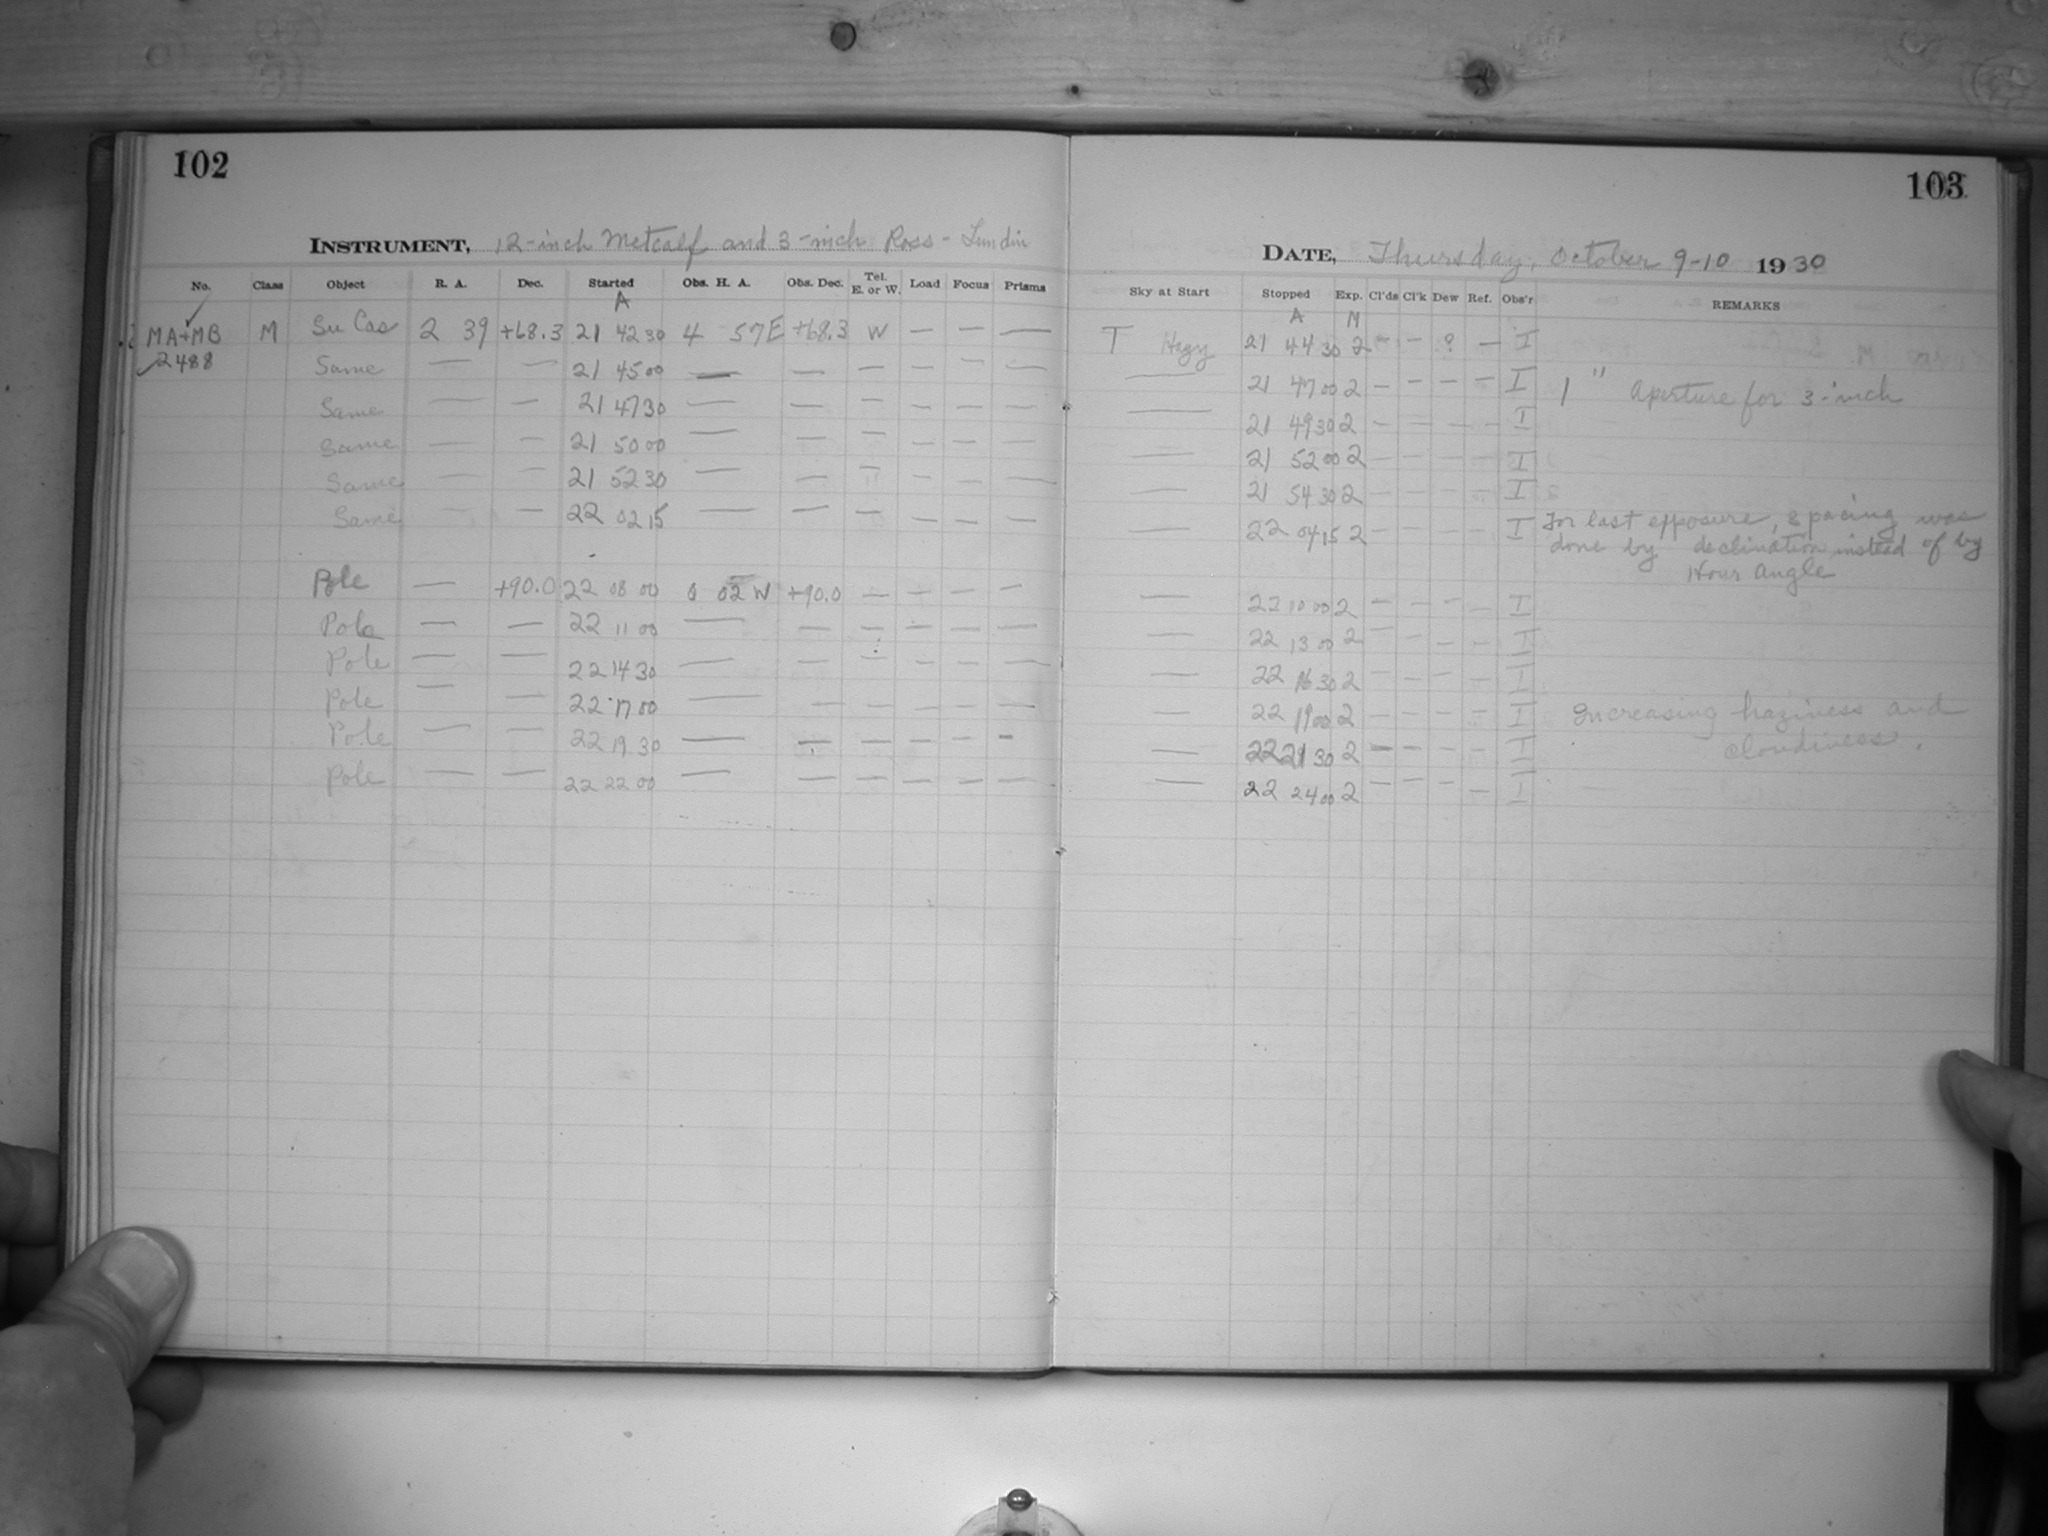 102
INSTRUMENT, 12-inch Metcalf and 3-inch Ross-Lundin
No. Class Object R. A. Dec. Started Obs. H. A. Obs. Dec. Tel. E. or W. Load Focus Prisms
A
MA+MB M Su Cas 2 39 +68.3 21 42 30 4 57E +68.3 W — — —
2488 Same — — 21 45 00 — — — — — —
Same — — 21 47 30 — — — — — —
Same — — 21 50 00 — — — — — —
Same — — 21 52 30 — — — — — —
Same — — 22 02 15 — — — — — —
Pole — +90.0 22 08 00 0 02 W +90.0 — — — —
Pole — — 22 11 00 — — — — — —
Pole — — 22 14 30 — — — — — —
Pole — — 22 17 00 — — — — — —
Pole — — 22 19 30 — — — — — —
Pole — — 22 22 00 — — — — — —
103
DATE, Thursday, October 9-10 1930
Sky at Start Stopped Exp. Cl'ds Cl'k Dew Ref. Obs'r REMARKS
A M
T Hazy 21 44 30 2 — — ? — I
— 21 47 00 2 — — — — I 1" Aperture for 3-inch
— 21 49 30 2 — — — — I
— 21 52 00 2 — — — — I
— 21 54 30 2 — — — — I
— 22 04 15 2 — — — — I For last exposure, spacing was
done by declination instead of by
Hour Angle
— 22 10 00 2 — — — — I
— 22 13 00 2 — — — — I
— 22 16 30 2 — — — — I
— 22 19 00 2 — — — — I Increasing haziness and
— 22 21 30 2 — — — — I cloudiness.
— 22 24 00 2 — — — — I